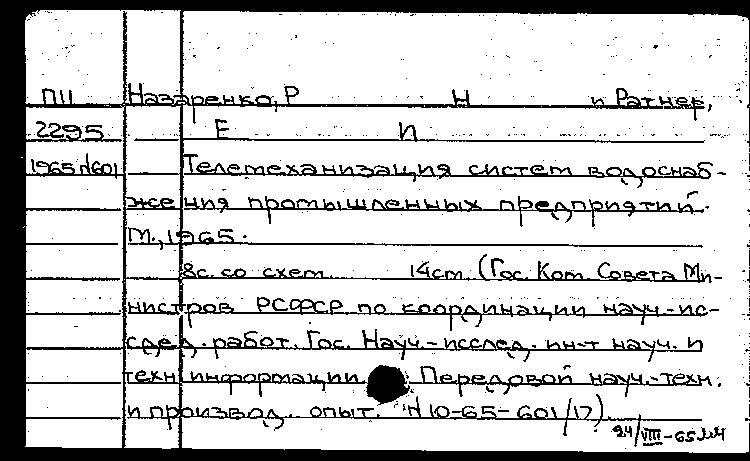 П11 Назаренко, Р Н и Ратнер,
2295 Е И
1965 N601 Телемеханизация систем водоснаб-
жения промышленных предприятий.
М., 1965.
8с. со схем. 14см. (Гос. Ком. Совета Ми-
нистров РСФСР по координации науч.-ис-
след. работ. Гос. Науч.-исслед. ин-т науч. и
техн. информации. Передовой науч.-техн.
и производ. опыт. N 10-65-601/17).
24/VIII-65